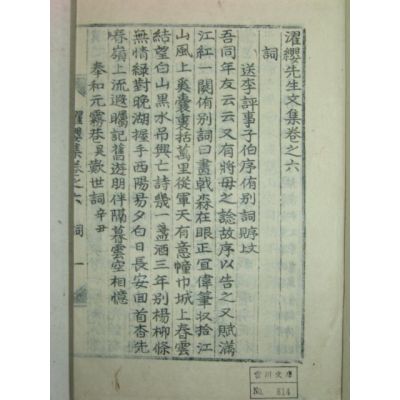 濯纓先生文集卷之六
詞
送李評事子伯序侑別詞
吾同年友云云又有將母之諗故序以告之又賦滿
江紅一闋侑別詞曰畫戟森在眼正宜偉筆収拾江
山風上奚囊裏括萬里從軍天有意幢巾城上春雲
結望白山黒水吊興亡詩幾一盞酒三年別楊柳條
無情綠對晚湖握手西陽易夕白日長安回首杳先
春嶺上流遐矚記舊遊朋伴隔暮雲空相憶
奉和元霧巷昊歎世詞 辛丑
濯纓集卷之六 詞 一
川文庫
No. 814